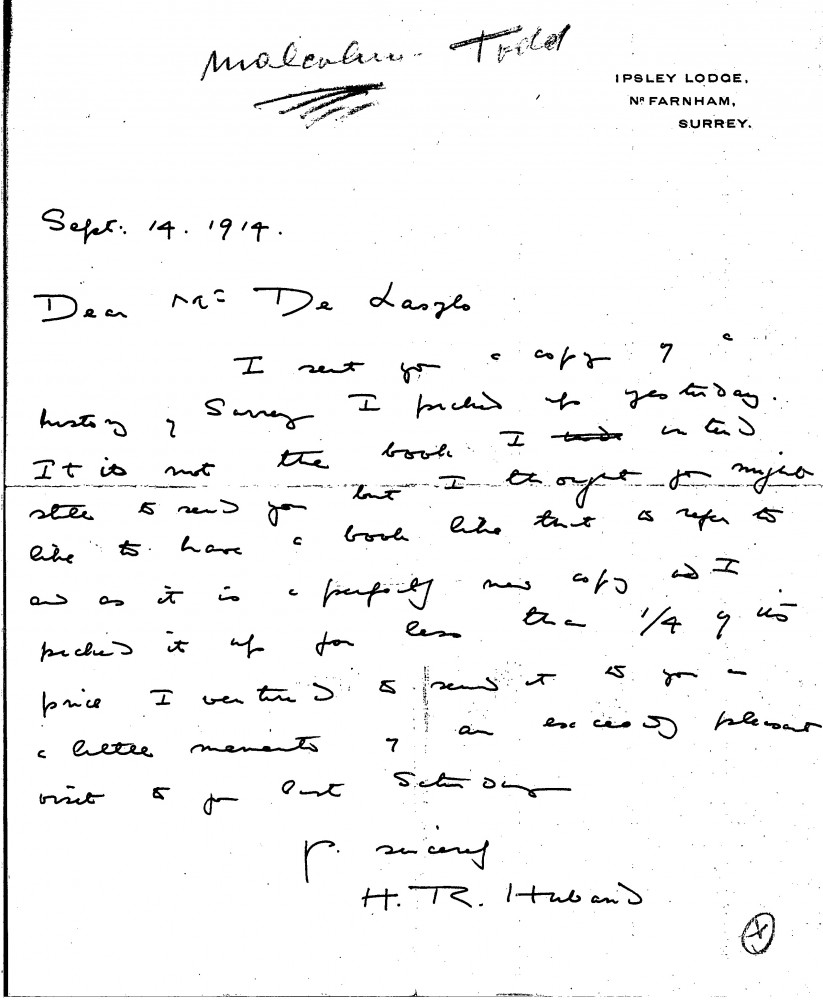 Malcolm Todd
IPSLEY LODGE,
Nʀ FARNHAM,
SURREY.
Sept: 14. 1914.
Dear Mr De Laszlo
I sent you a copy of a
history of Surrey I picked up yesterday.
It is not the book I intend
still to send you but I thought you might
like to have a book like that to refer to
and as it is a perfectly new copy and I
picked it up for less than 1/4 of its
price I ventured to send it to you as
a little memento of an exceedingly pleasant
visit to you last Saturday
Yr. sincerely
H. R. Huband
X